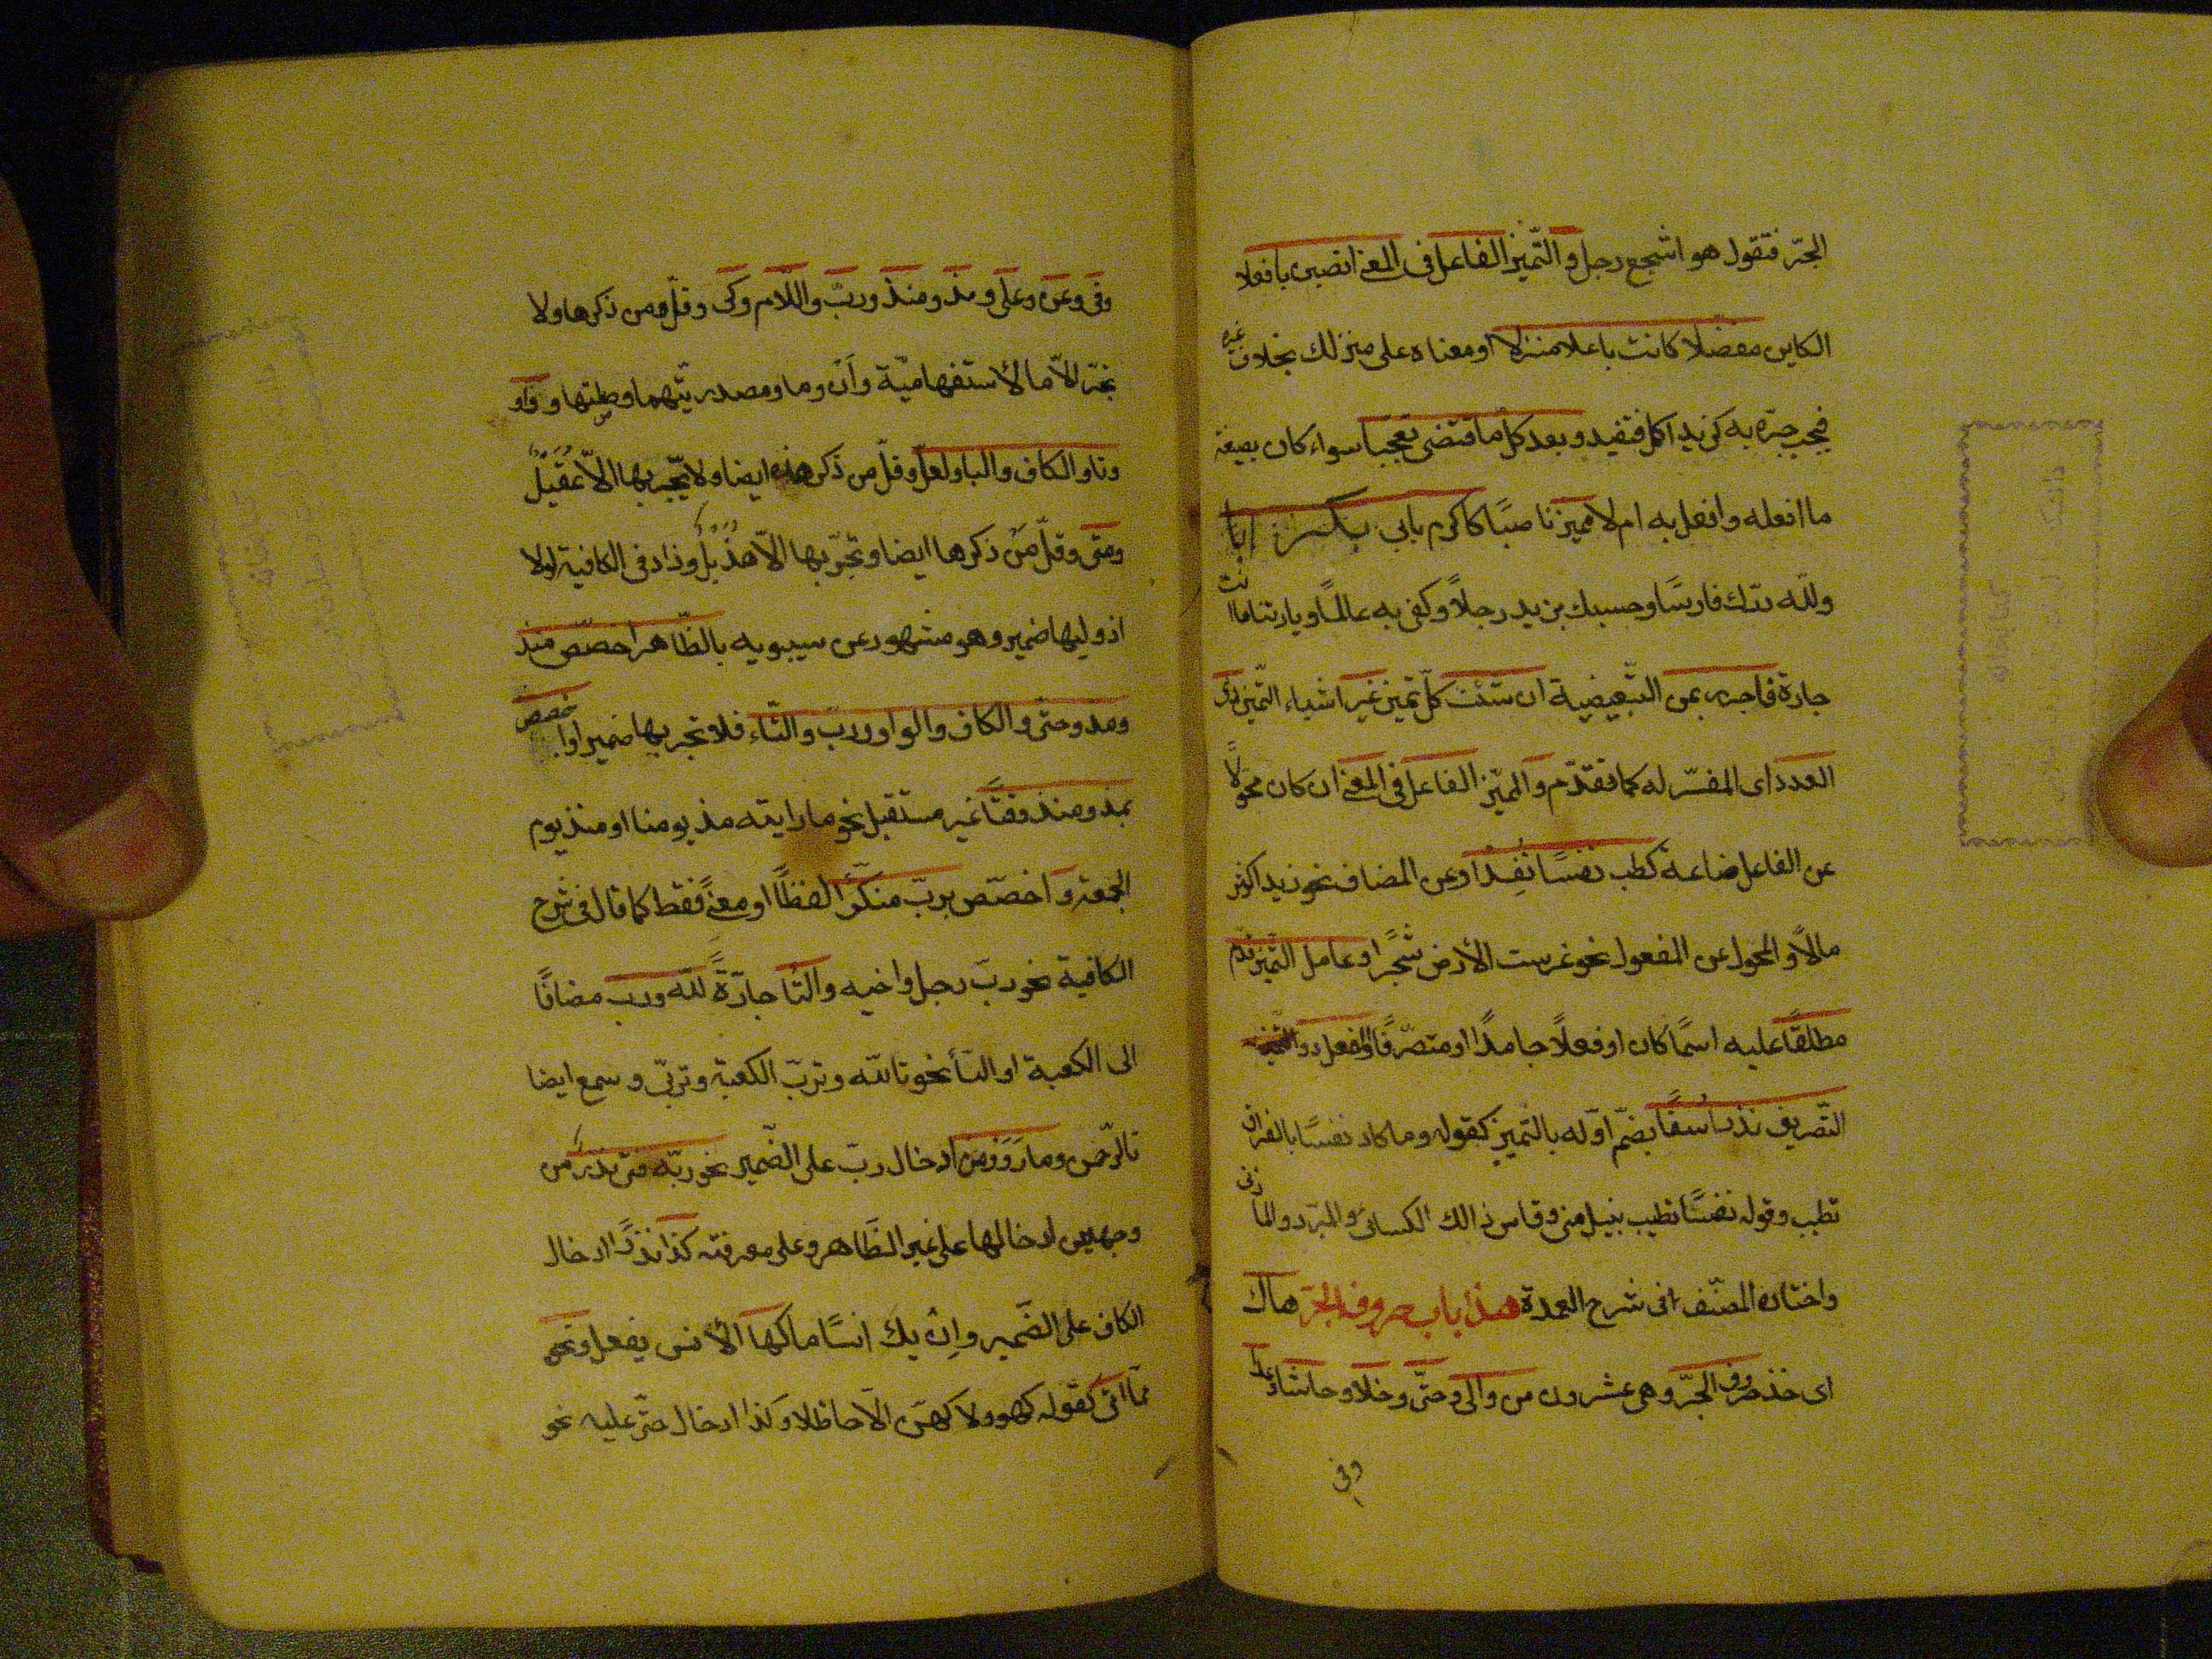 الجرّ فتقول هو اشجع رجل والتّميز الفاعل فى المعنى انصبن بافعلا
الكاين مفضّلا كانت باعلا منزلا او معناه على منزلك بخلاف غيره
فيجب جرّه به كزيد اكمل فقيد وبعد كلّ ما اقتضى تعجّبا سواء كان بصيغة
ما افعله وافعل به ام لا مميز ناصبًا كاكرم بابى بكر ابا
ولله درّك فارسًا وحسبك بزيد رجلاً وكفى به عالمًا ويا جارتا ما انت
جارة فاجرر بمن التّبعيضية ان شئت كلّ تميز غير اشياء التّميز ذى
العدد اى المفسّر له كما تقدّم والتميّز الفاعل فى المعنى ان كان محوّلاً
عن الفاعل صناعة كطب نفسًا تُفِدْ اوعن المضاف نحو زيد اكثر
مالاً والمحول عن المفعول نحو غرست الأرض شجرًا وعامل التّميز قدّم
مطلقًا عليه اسمًا كان او فعلاً جامدًا او متصرّفًا والفعل ذو
التّصريف نذرا سُبقًا بضمّ اوّله بالتّميز كقوله وما كاد نفسًا بالفراق
تطيب وقوله نفسًا تطيب بنيل منى وقاس ذالك الكسائىّ والمبرّد والمازنى
واختاره المصنّف فى شرح العمدة هذا باب حروف الجرّ هاك
اى خذ حروف الجرّ وهى عشرون من والى وحتّى وخلا وحاشا وعدا
وفى
وفى وعن وعلى ومذ ومنذ وربّ واللّام وكى وقلّ من ذكرها ولا
تجرّ الاّ ما الأستفهاميّة وأن وما ومصدريّتهما وصلتها وواو
وتا والكاف والبا ولعلّ وقلّ من ذكر هذه ايضا ولا يجرّ بها الاّ عُقَيْلٌ
ومتى وقلّ من ذكرها ايضا وتجرّ بها الاّ هذيل وزاد فى الكافية لولا
اذ وليها ضمير وهو مشهور عن سيبويه بالظّاهر اخصص منذ
ومذ وحتى والكاف والواو وربّ والتّاء فلا تجر بها ضميرا واخصص
بمذ ومنذ وقتًا غير مستقبل نحو ما رايته مذ يومنا او منذ يوم
الجمعة واخصّص بربّ منكّرًا لفظًا او معنىً فقط كما قال فى شرح
الكافية نحو ربّ رجل واخيه والتّا جارّةً لله وربّ مضافًا
الى الكعبة او اليأ نحو تالله وتربّ الكعبة وتربّى وسمع ايضا
تالرّحمن وما رَوَوْا من ادخال ربّ على الضّمير نحو ربّه فتى نذرٌ من
وجهين ادخالها على غير الظّاهر وعلى معرفته كذا نذرًا ادخال
الكاف على الضّمير وإن يك انسًا ما كها الأنس يفعل ونحوه
ممّا اتى كقوله كهو ولا كهنّ الاّ حاظلا وكذا ادخال حتّى عليه نحو